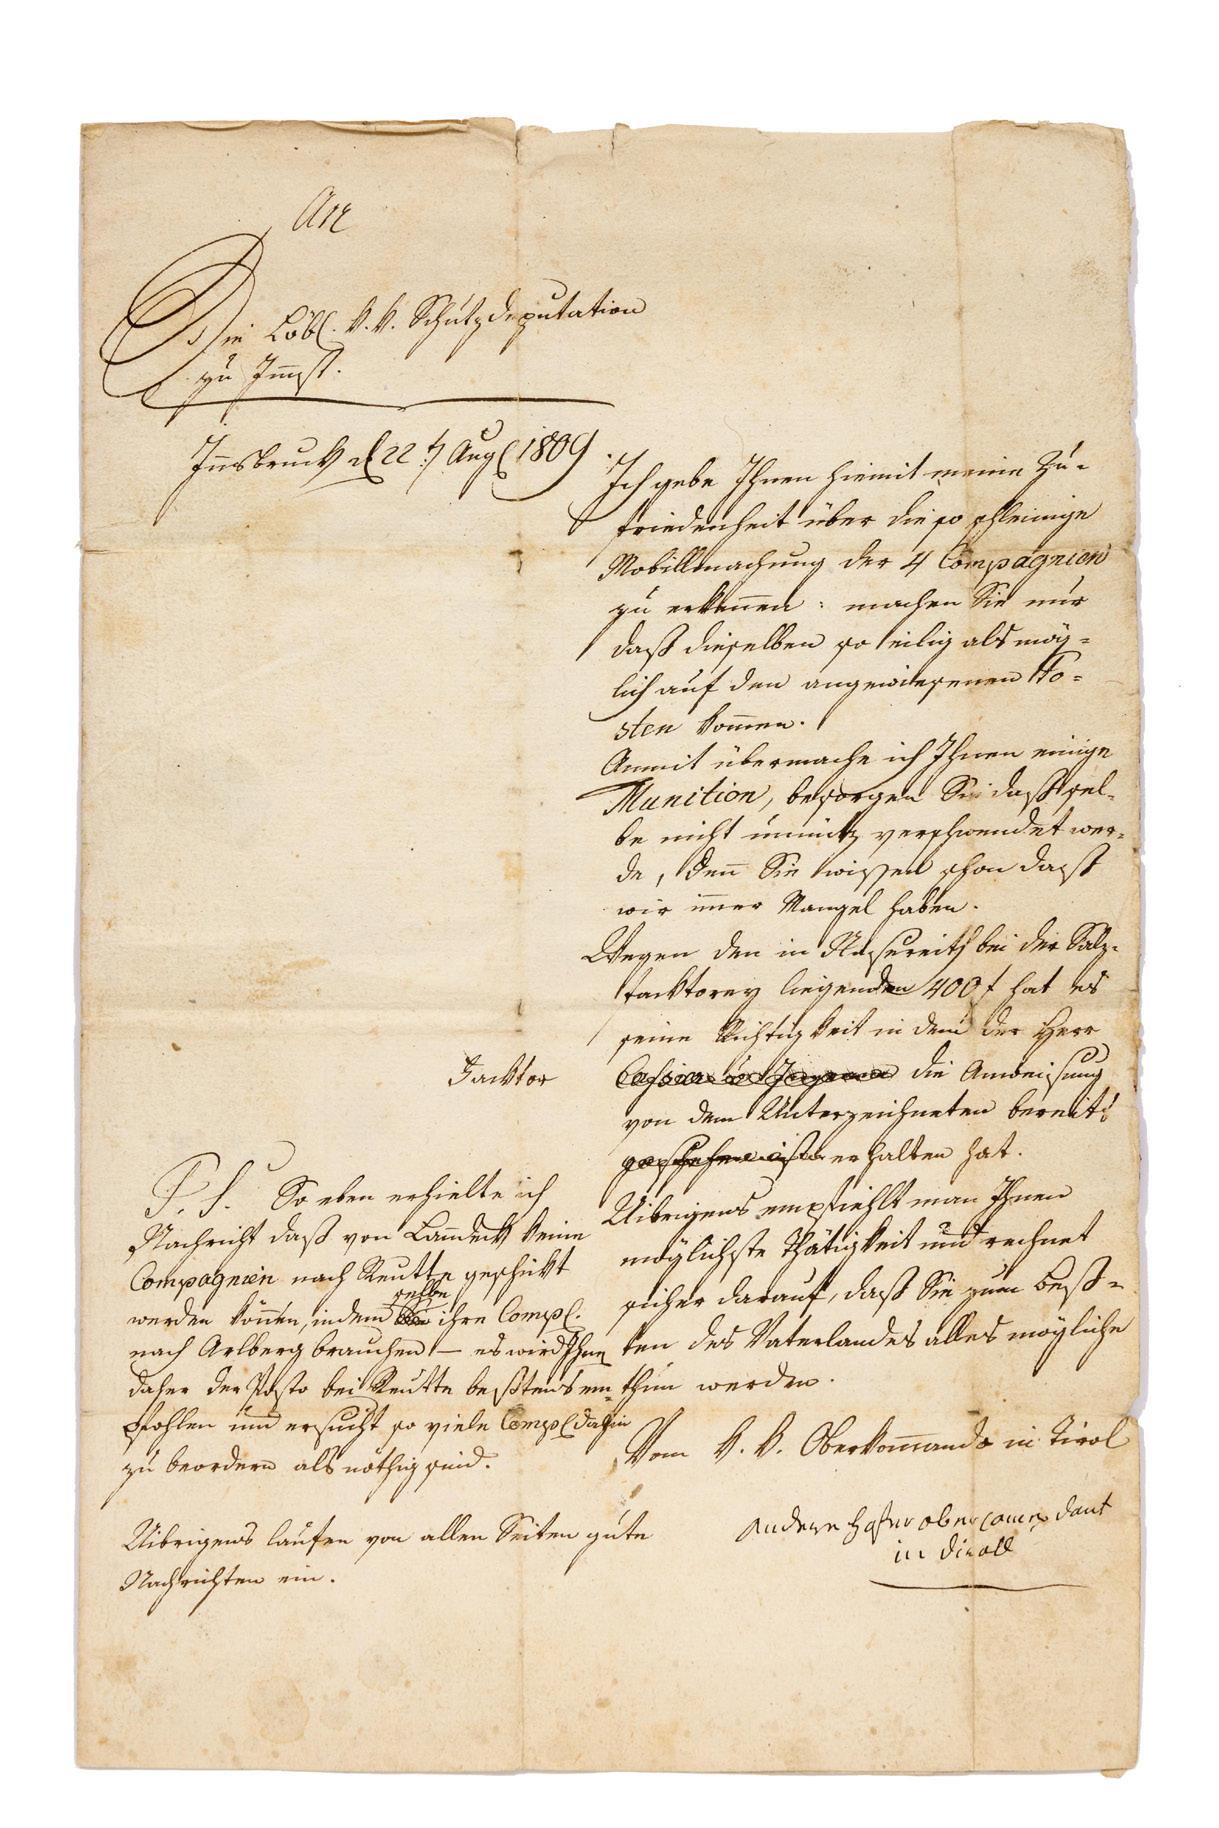 An
Die Löbl. k. k. Schutzdeputation
zu Immst.
Innsbruck d 22t Aug 1809
Ich gebe Ihnen hiemit meine Zu-
friedenheit über die so schleinige
Mobillmachung der 4 Compagnien
zu erkennen: machen Sie nur
daß dieselben so eilig als mög-
lich auf den angewiesenen Po-
sten kommen.
Anmit übermache ich Ihnen einige
Munition, besorgen Sie daß sel-
be nicht unnütz verschwendet wer-
de, denn Sie wissen schon daß
wir immer Mangel haben.
Wegen den in Nasereith bei der Salz-
facktorey liegenden 400 f hat es
seine Richtigkeit in dem der Herr
Facktor
die Anweisung
von dem Unterzeichneten bereits
geschehen ist erhalten hat.
Uibrigens empfiehlt man Ihnen
möglichste Thätigkeit und rechnet
sicher darauf, daß Sie zum Beß-
ten des Vaterlandes alles mögliche
thun werden.
Vom k. k. Oberkommando in Tirol
Andere Hofer ober comendant
in Diroll
P. S. So eben erhielte ich
Nachricht daß von Landeck keine
Compagnien nach Reutte geschikt
werden können, indem selbe ihre Comp.
nach Arlberg brauchen — es wird Ihnen
daher der Posto bei Reutte beßtens em-
pfohlen und ersucht so viele Comp dahin
zu beordern als nöthig sind.
Uibrigens laufen von allen Seiten gute
Nachrichten ein.